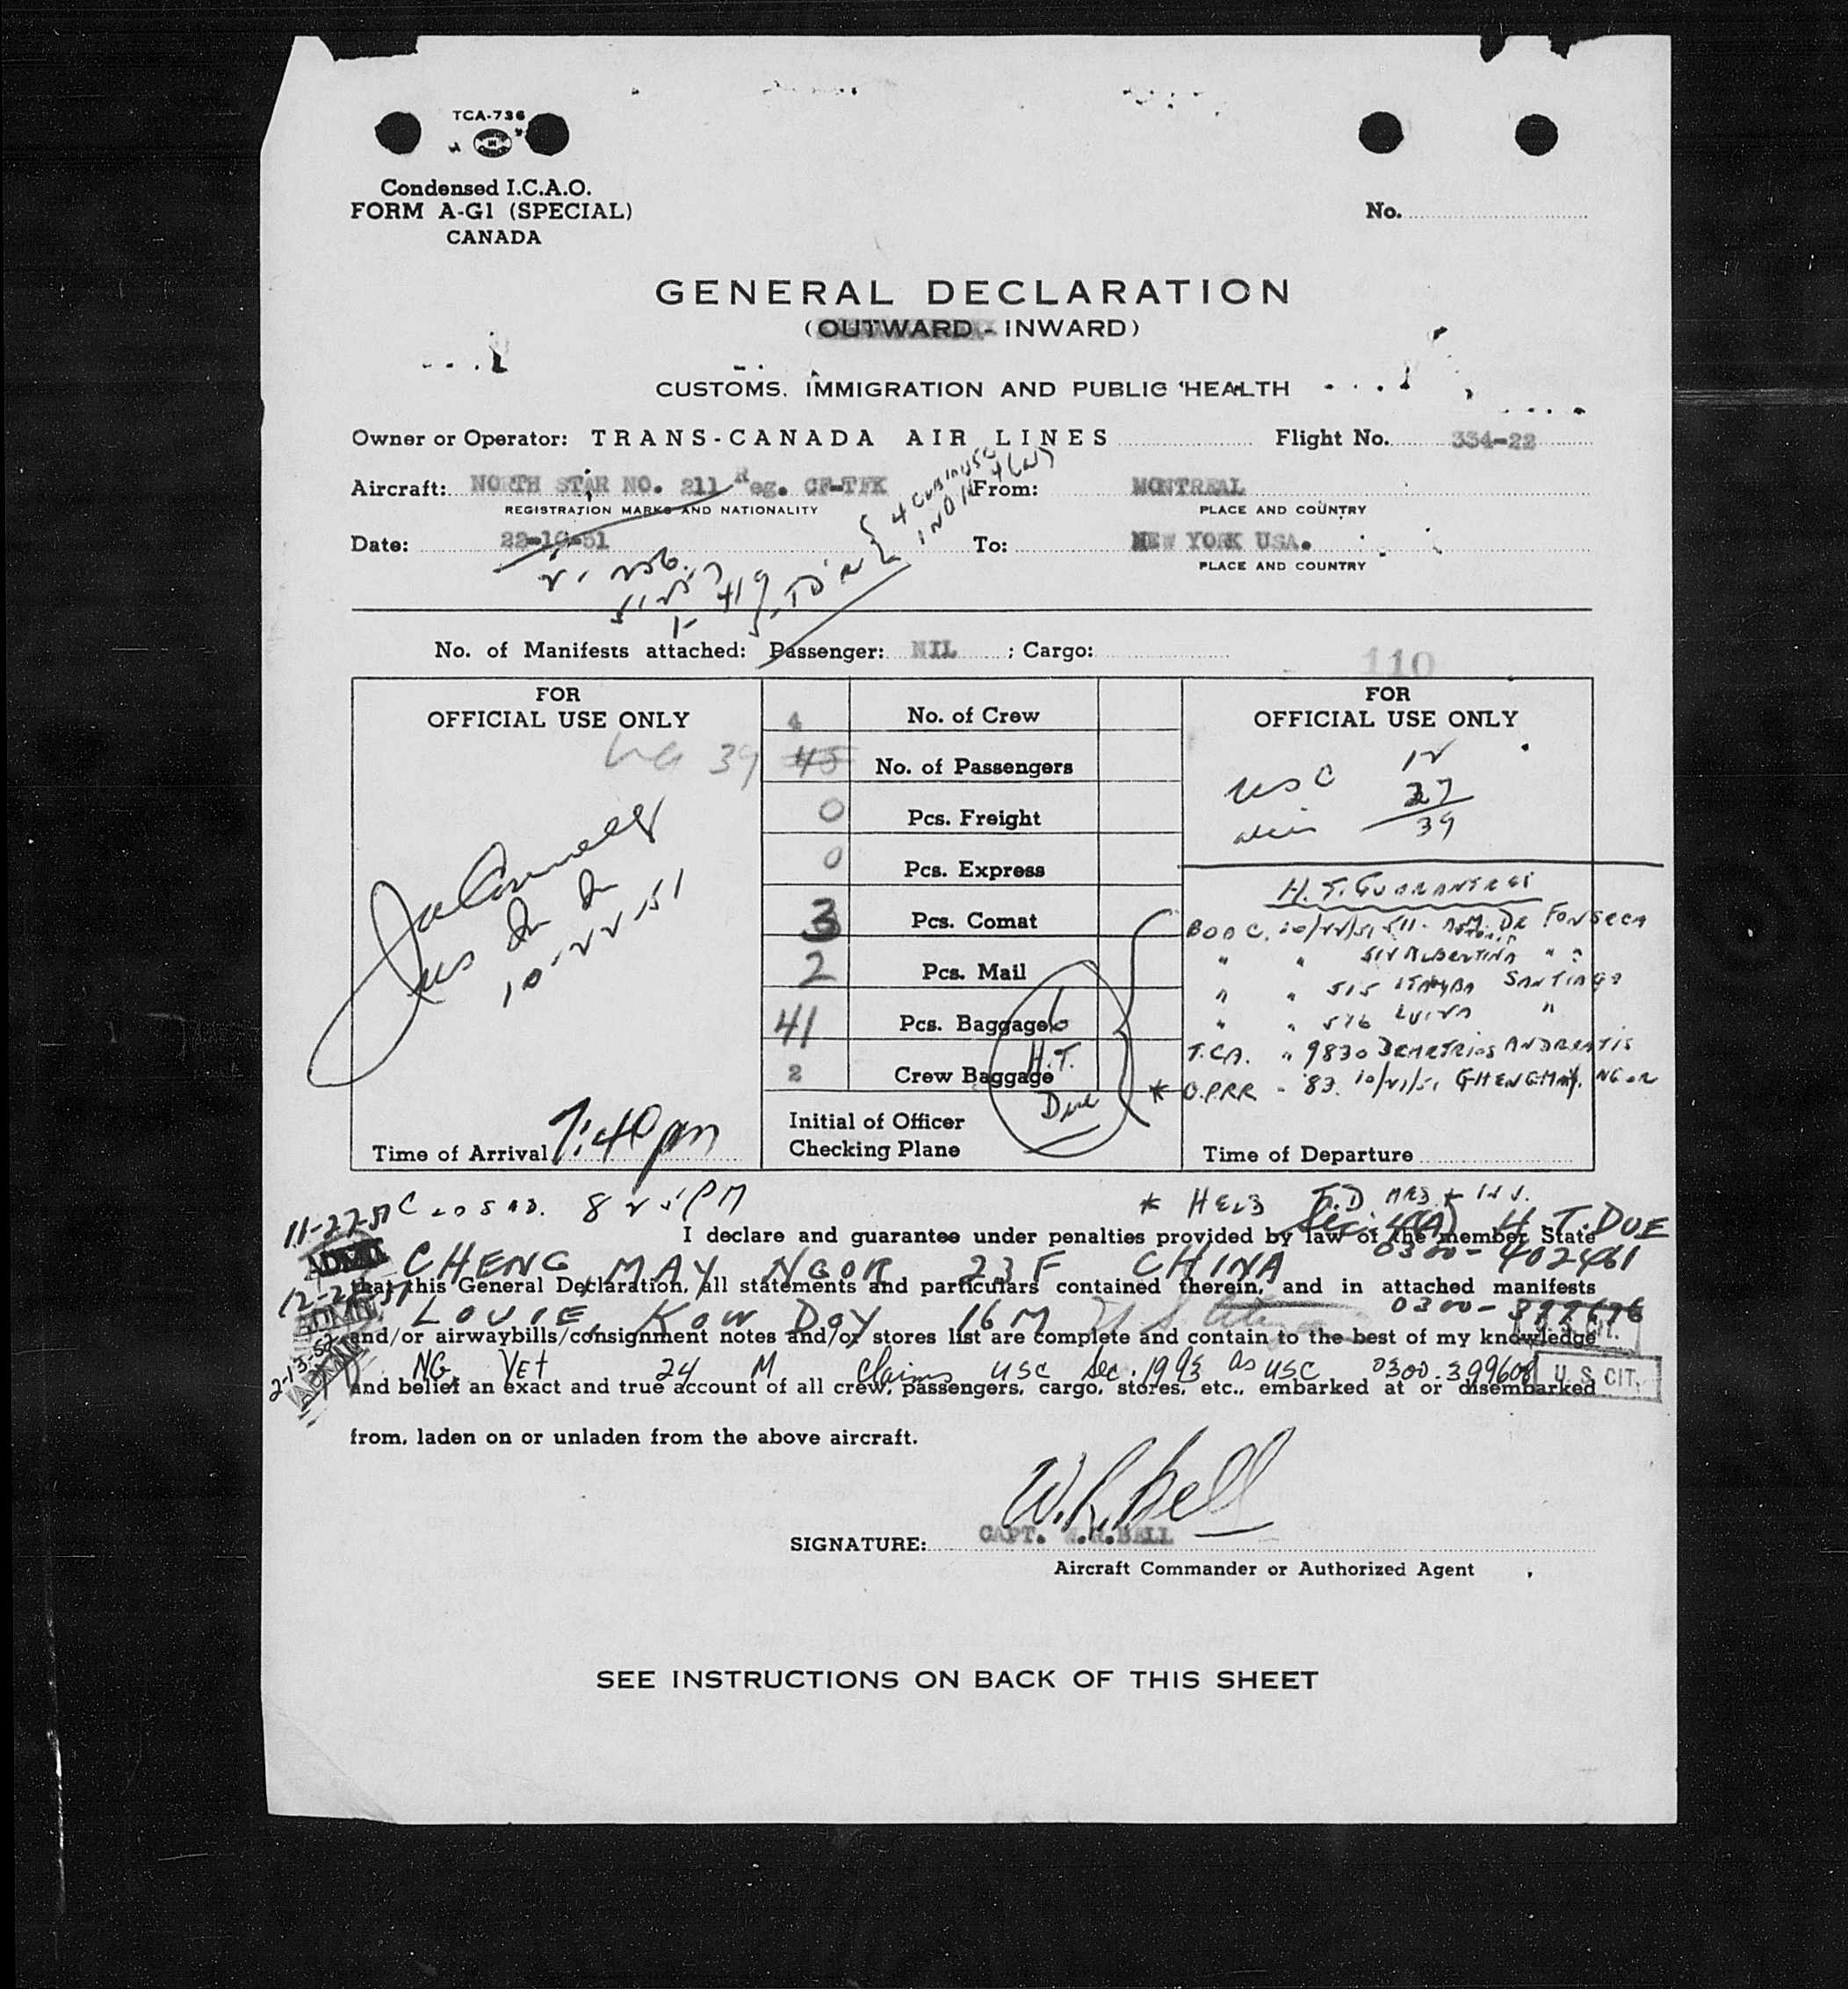 TCA-736
Condensed I.C.A.O.
FORM A-G1 (SPECIAL)
CANADA
No.
GENERAL DECLARATION
(OUTWARD - INWARD)
CUSTOMS, IMMIGRATION AND PUBLIC HEALTH
Owner or Operator: TRANS-CANADA AIR LINES Flight No. 334-22
Aircraft: NORTH STAR NO. 211 Reg. CF-TFK From: MONTREAL
REGISTRATION MARKS AND NATIONALITY PLACE AND COUNTRY
Date: 22-10-51 To: NEW YORK USA.
PLACE AND COUNTRY
419
No. of Manifests attached: Passenger: NIL ; Cargo:
110
FOR
OFFICIAL USE ONLY
4 No. of Crew
39 45 No. of Passengers
0 Pcs. Freight
0 Pcs. Express
3 Pcs. Comat
2 Pcs. Mail
41 Pcs. Baggage
2 Crew Baggage
6
H.T.
Due
Initial of Officer
Checking Plane
10-22-51
Time of Arrival 7:40 pm
FOR
OFFICIAL USE ONLY
USC 12
alien 27
39
H.T. GUARANTEES
DE FONSECA
ALBERTINA " "
515 SANTIAGO
516 "
T.C.A. " 9830 DEMETRIOS ANDREATIS
* O.P.R.R - 83. CHENG MAY NGOR
Time of Departure
825 PM
* HELD H.T. DUE
11-27-51
ADMIT
I declare and guarantee under penalties provided by law of the member State
CHENG MAY NGOR 23 F CHINA 0300-402461
that this General Declaration, all statements and particulars contained therein, and in attached manifests
LOUIE, KOW DOY 16 M U.S. Citizen
and/or airwaybills/consignment notes and/or stores list are complete and contain to the best of my knowledge
2-13-52
NG, YET 24 M Claims USC as USC 0300-399608 U.S. CIT.
and belief an exact and true account of all crew, passengers, cargo, stores, etc., embarked at or disembarked
from, laden on or unladen from the above aircraft.
W.R. Bell
SIGNATURE: CAPT. W.R.BELL
Aircraft Commander or Authorized Agent
SEE INSTRUCTIONS ON BACK OF THIS SHEET